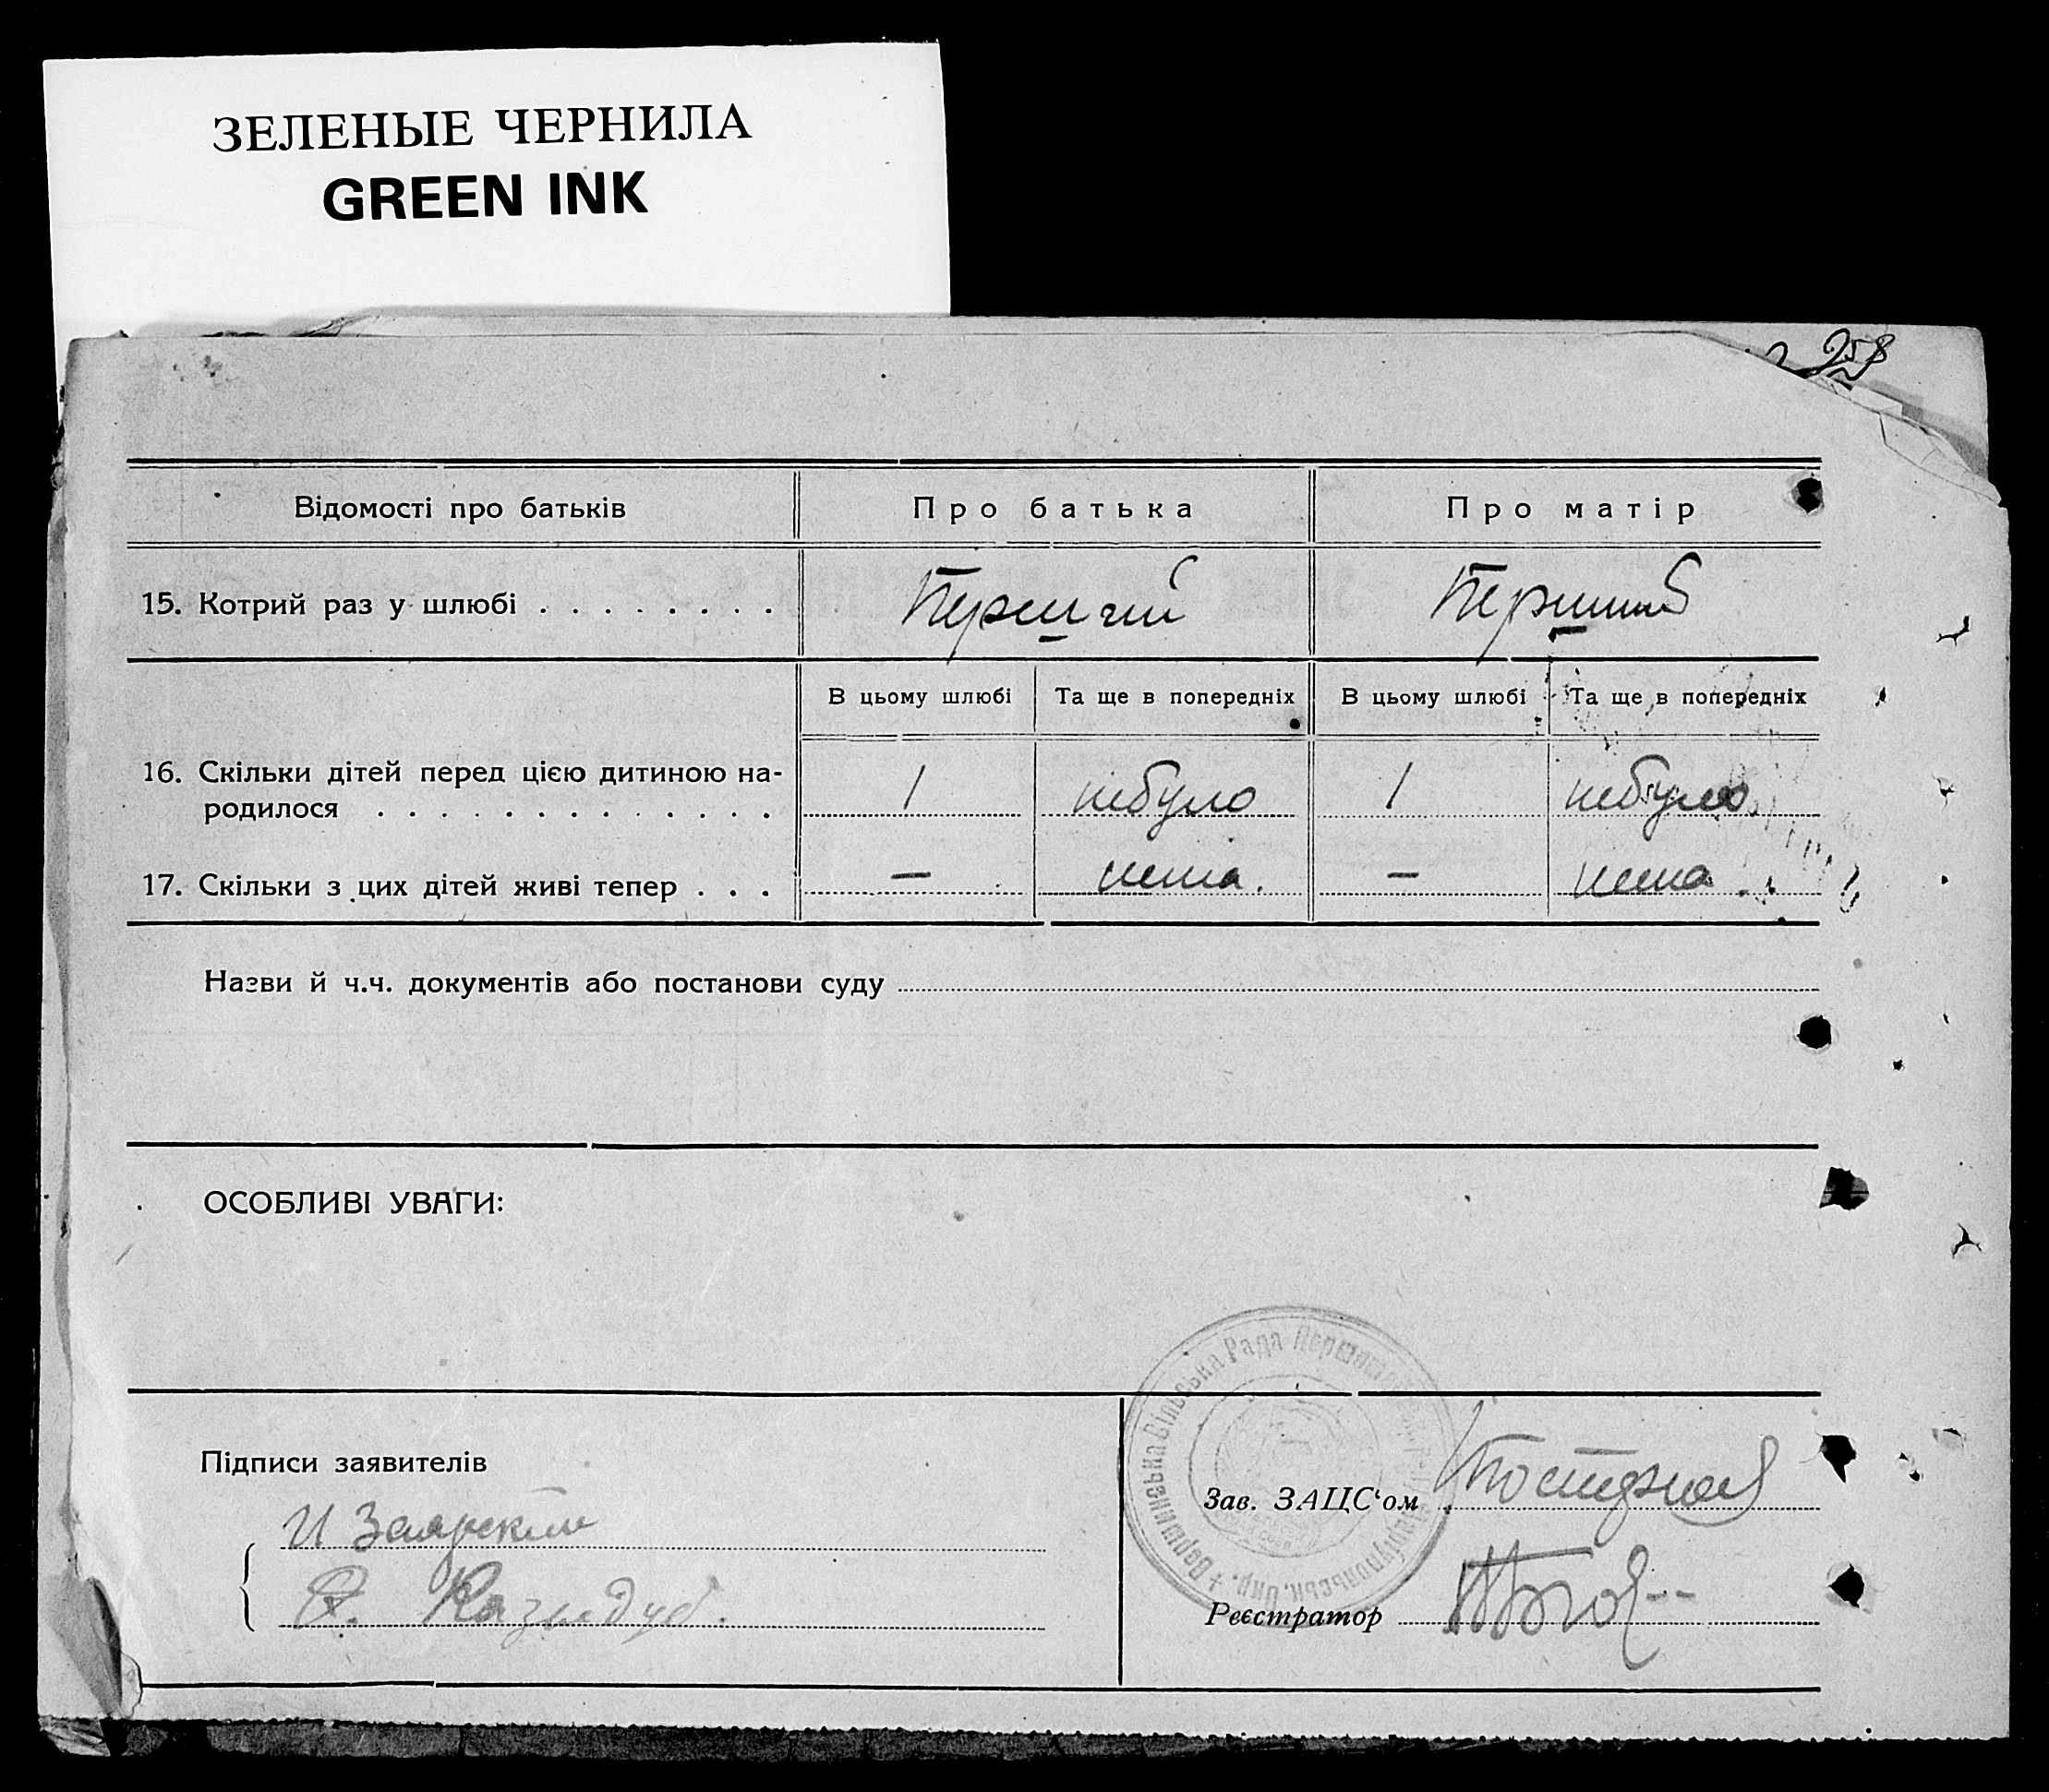 ЗЕЛЕНЫЕ ЧЕРНИЛА
GREEN INK
258
Відомості про батьків
Про батька
Про матір
15. Котрий раз у шлюбі . . . . . . . .
Перший
Перший
В цьому шлюбі
Та ще в попередніх
В цьому шлюбі
Та ще в попередніх
16. Скільки дітей перед цією дитиною на-
родилося . . . . . . . . . . . . . .
1
небуло
1
небуло
17. Скільки з цих дітей живі тепер . . .
—
нема.
—
нема.
Назви й ч.ч. документів або постанови суду
ОСОБЛИВІ УВАГИ:
Сільська Рада
Підписи заявителів
И Заярский
Зав. ЗАЦС‘ом
Реєстратор